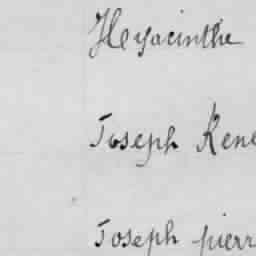 Hyacinthe
Joseph René
Joseph pierr